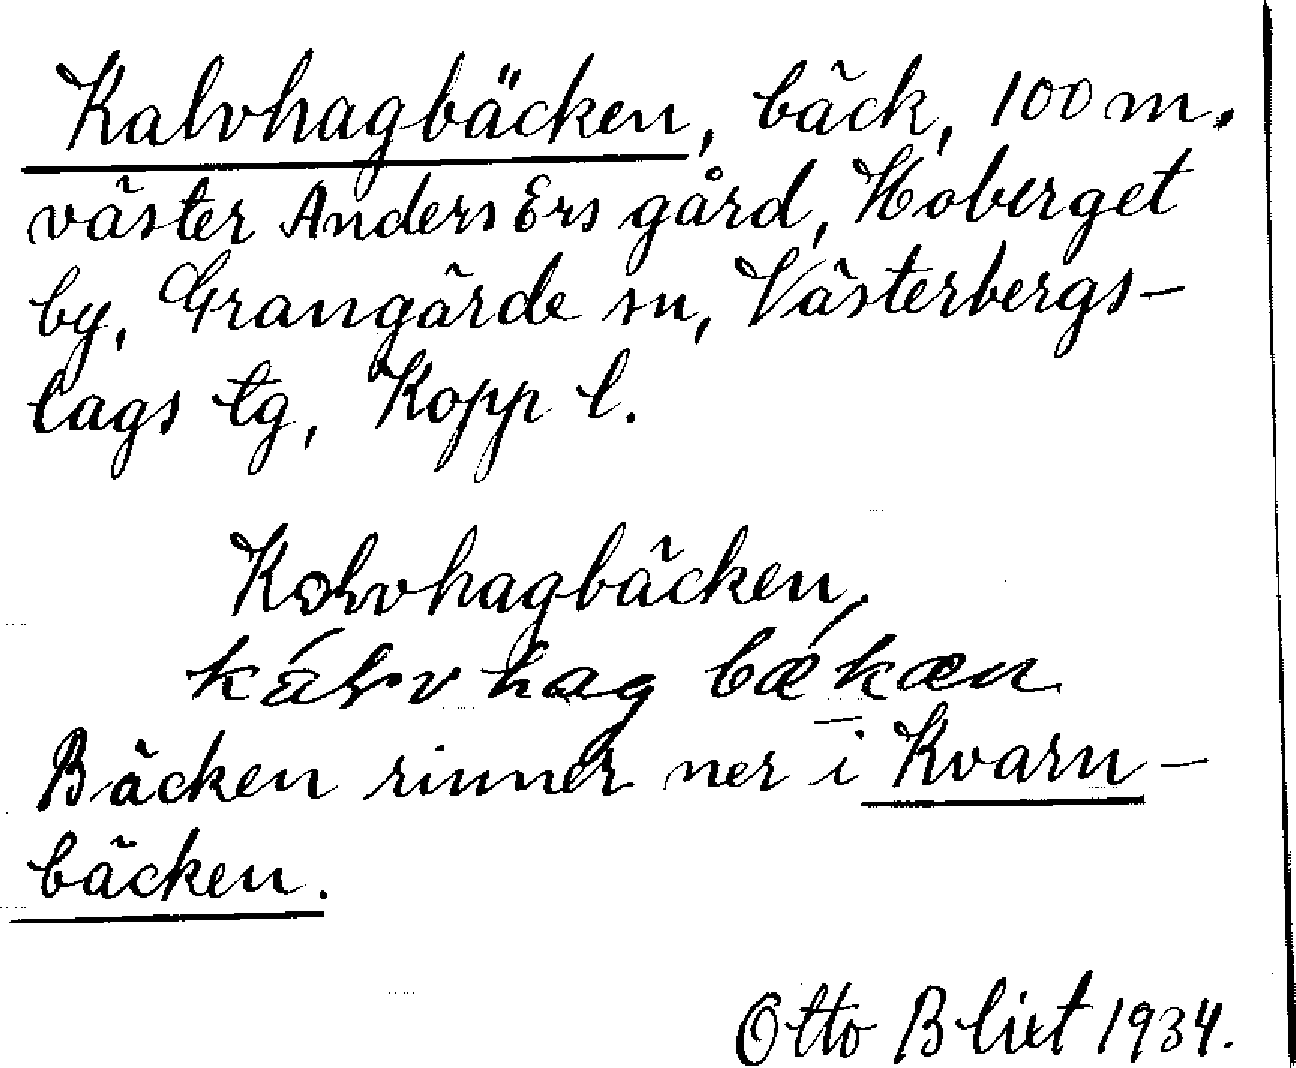 Kalvhagbäcken, bäck, 100 m.
väster Anders Ers gård, Hoberget
by, Grangärde sn, Västerbergs-
lags tg, Kopp l.
Kalvhagbäcken.
kálv hag bǽkæn
Bäcken rinner ner i Kvarn-
bäcken.
Otto Blixt 1934.